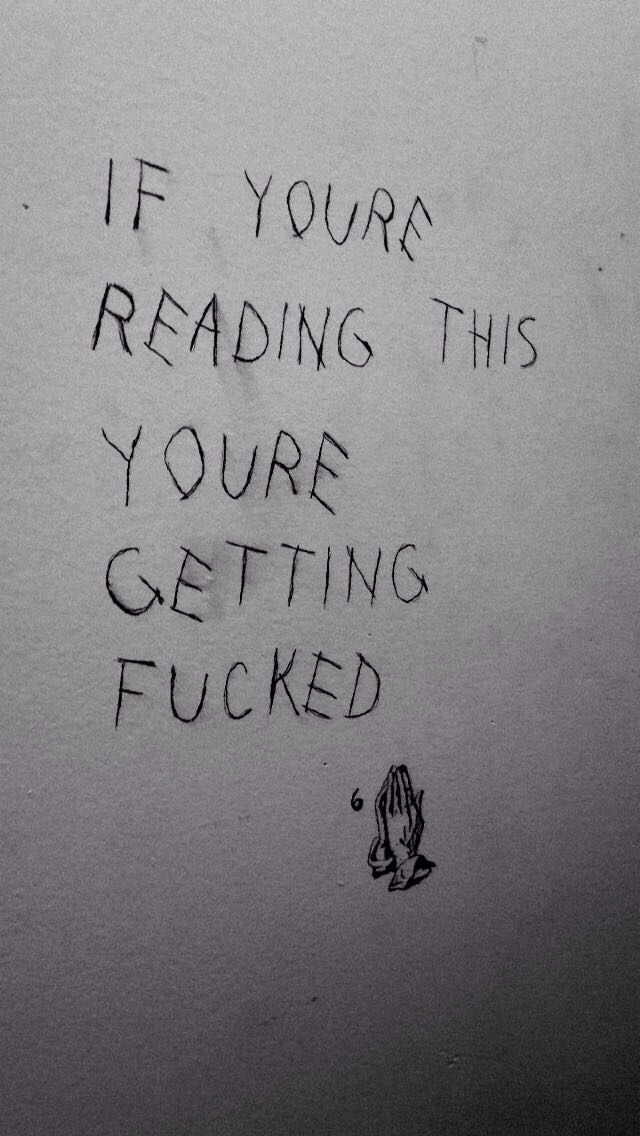 IF YOURE
READING THIS
YOURE
GETTING
FUCKED
6